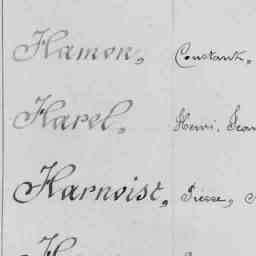 Hamon, Constant,
Harel, Henri, Jean
Harnoist, Pierre,